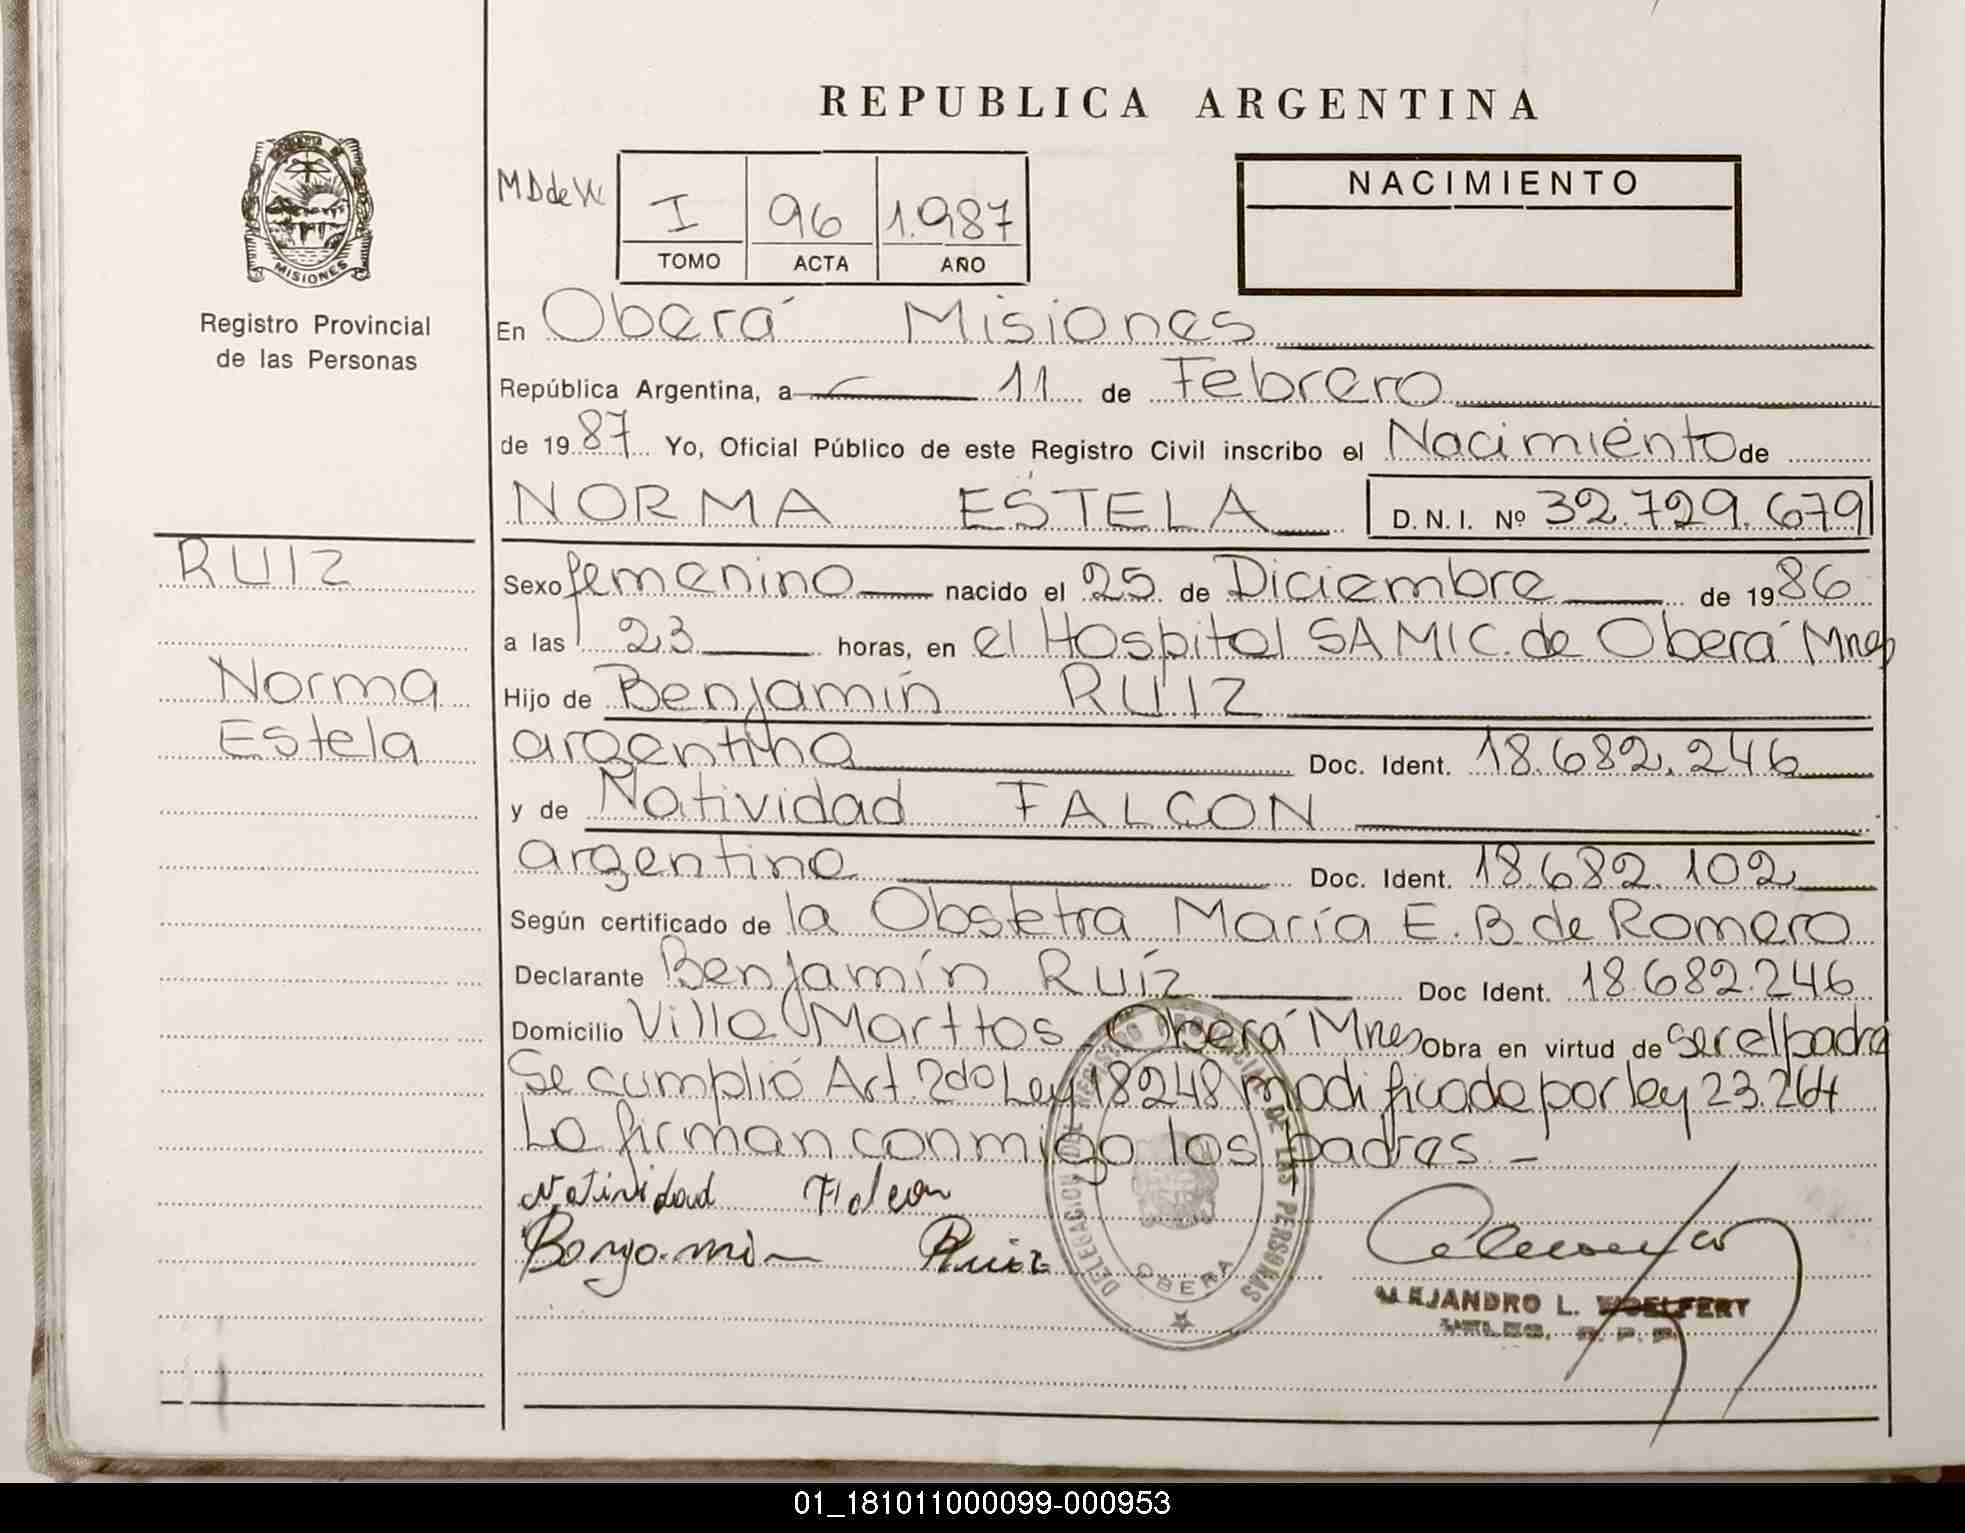 REPUBLICA ARGENTINA
MISIONES
Registro Provincial
de las Personas
RUIZ
Norma
Estela
MD de W
I 96 1.987
TOMO ACTA AÑO
NACIMIENTO
En Oberá Misiones
República Argentina, a 11 de Febrero
de 1987 Yo, Oficial Público de este Registro Civil inscribo el Nacimiento de
NORMA ESTELA D.N.I. Nº 32.729.679
Sexo femenino nacido el 25 de Diciembre de 1986
a las 23 horas, en el Hospital SAMIC. de Oberá Mnes
Hijo de Benjamín RUIZ
argentina Doc. Ident. 18.682.246
y de Natividad FALCON
argentina Doc. Ident. 18.682.102
Según certificado de la Obstetra María E. B. de Romero
Declarante Benjamín Ruíz Doc Ident. 18.682.246
Domicilio Villa Marttos Oberá Mnes Obra en virtud de ser el padre
Se cumplió Art. 2do Ley 18248 modificada por ley 23.264
Lo firman conmigo los padres. -
Natividad Falcon
Benjamin Ruiz
DELEGACION DEL REGISTRO PROVINCIAL DE LAS PERSONAS
OBERA
ALEJANDRO L. WOELFERT
R. P. P.
01_181011000099-000953